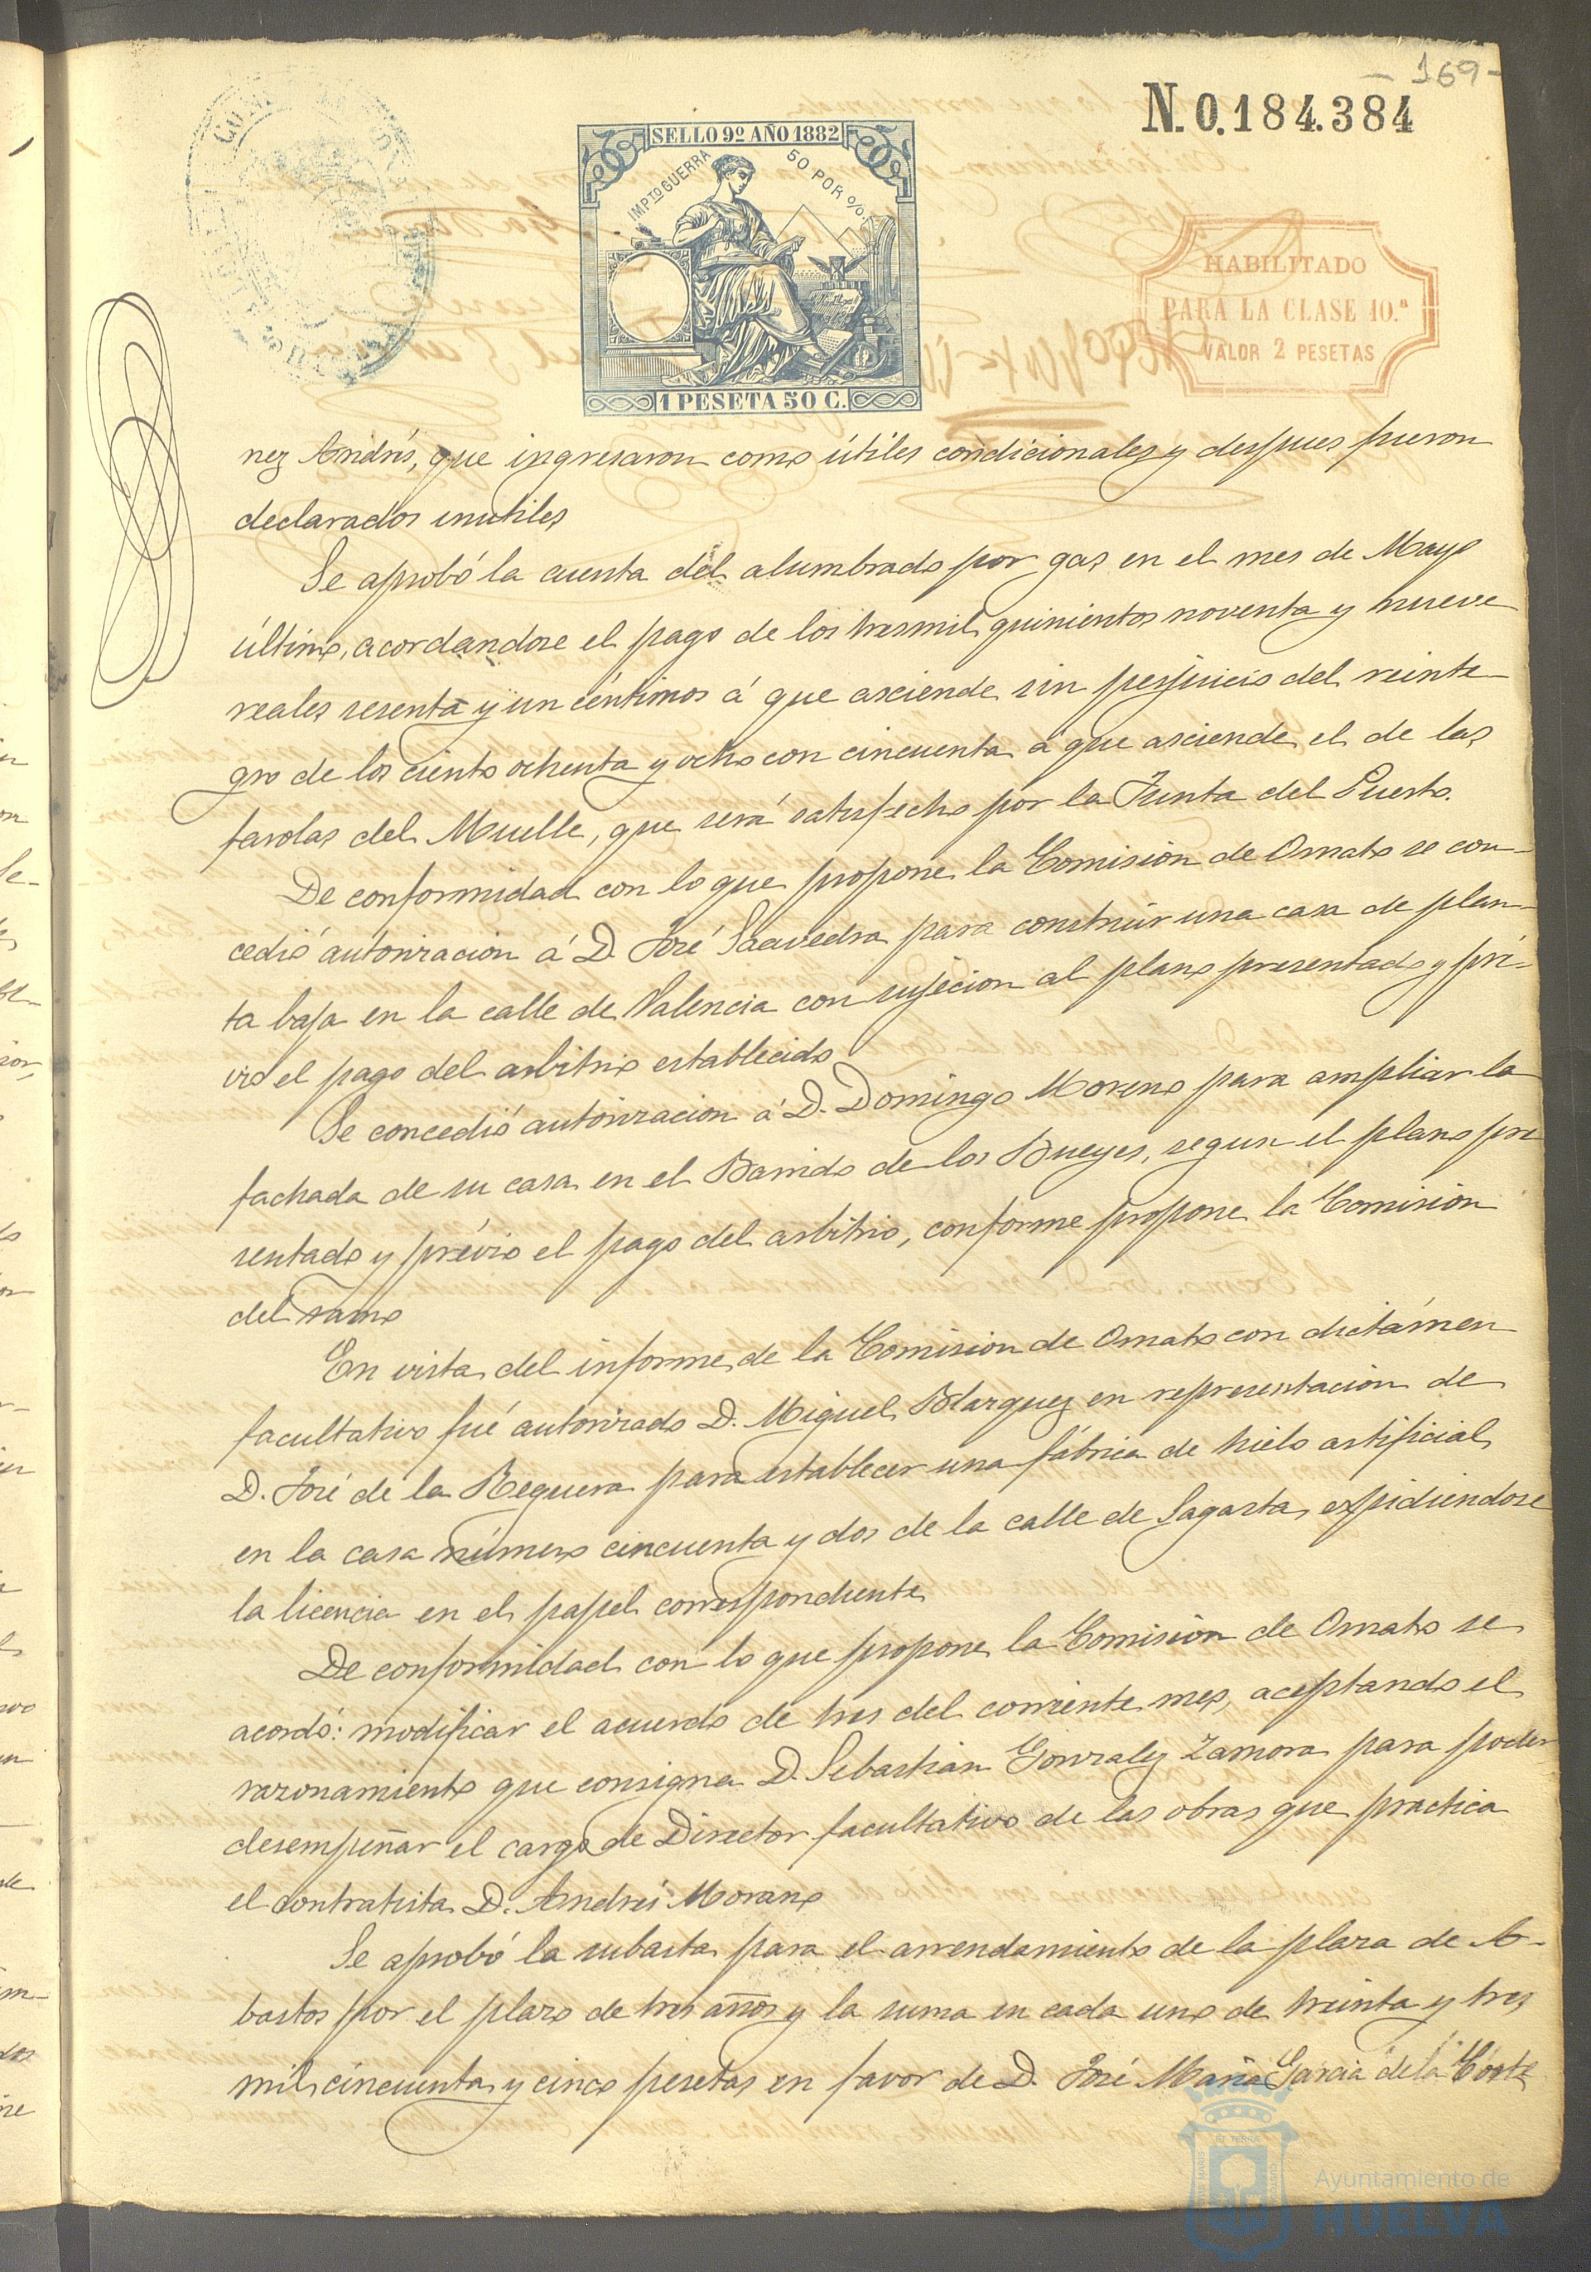 -169-
N. 0.184.384
SELLO 9º AÑO 1882
IMPTO GUERRA 50 POR 0/0.
1 PESETA 50 C.
HABILITADO
PARA LA CLASE 10.ª
VALOR 2 PESETAS
nez Andrés, que ingresaron como útiles condicionales y despues fueron
declarados inutiles
Se aprobó la cuenta del alumbrado por gas en el mes de Mayo
último, acordandose el pago de los tresmil quinientos noventa y nueve
reales sesenta y un céntimos á que asciende sin perjuicio del reinte-
gro de los ciento ochenta y ocho con cincuenta á que asciende el de las
farolas del Muelle, que será satisfecho por la Junta del Puerto.
De conformidad con lo que propone la Comision de Ornato se con-
cedió autorizacion á D. José Saavedra para construir una casa de plan-
ta baja en la calle de Valencia con sujecion al plano presentado y pré-
vio el pago del arbitrio establecido
Se concedió autorizacion á D. Domingo Moreno para ampliar la
fachada de su casa en el Barrido de los Bueyes, segun el plano pre
sentado y prévio el pago del arbitrio, conforme propone la Comision
del ramo
En vista del informe de la Comision de Ornato con dictámen
facultativo fué autorizado D. Miguel Blazquez en representacion de
D. José de la Reguera para establecer una fábrica de hielo artificial
en la casa número cincuenta y dos de la calle de Sagasta, expidiendose
la licencia en el papel correspondiente
De conformidad con lo que propone la Comision de Ornato se
acordó: modificar el acuerdo de tres del corriente mes, aceptando el
razonamiento que consigna D. Sebastian Gonzalez Zamora para poder
desempeñar el cargo de Director facultativo de las obras que practica
el contratista D. Andrés Morano
Se aprobó la subasta para el arrendamiento de la plaza de A-
bastos por el plazo de tres años y la suma en cada uno de treinta y tres
mil cincuenta y cinco pesetas en favor de D. José Maria Garcia de la Corte
Ayuntamiento de
HUELVA